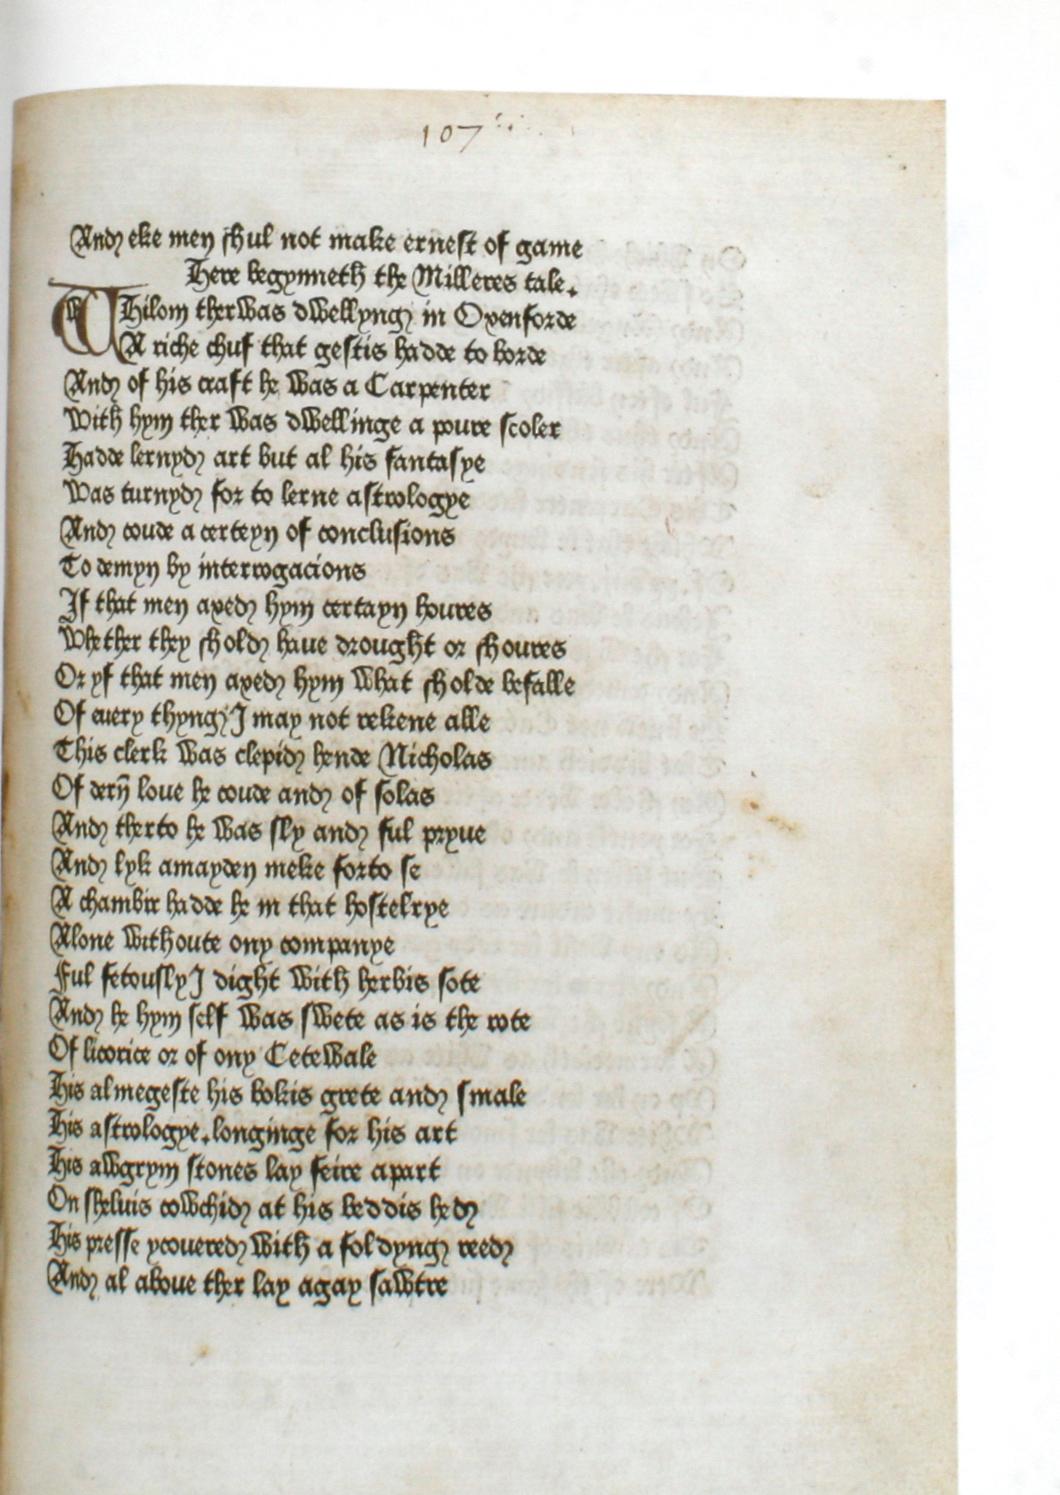 107
And eke men shul not make ernest of game
Here begynneth the Milleres tale.
WHilom ther was dwellyng in Oxenforde
A riche chuf that gestis hadde to borde
And of his craft he was a Carpenter
With hym ther was dwellinge a poure scoler
Hadde lernyd art but al his fantasye
Was turnyd for to lerne astrologye
And coude a certeyn of conclusions
To demyn by interrogacions
If that men axed hym certayn houres
Whether they shold have drought or shoures
Or yf that men axed hym what sholde befalle
Of euery thyng I may not rekene alle
This clerk was clepid hende Nicholas
Of dern̄ loue he coude and of solas
And therto he was sly and ful pryue
And lyk amayden meke forto se
A chambir hadde he in that hostelrye
Alone withoute ony companye
Ful fetously I dight with herbis sote
And he hym self was swete as is the rote
Of licorice or of ony Cetewale
His almegeste his bokis grete and smale
His astrologye. longinge for his art
His awgrym stones lay feire apart
On sheluis cowchid at his beddis hed
His presse ycouered with a foldyng reed
And al aboue ther lay agay sawtre